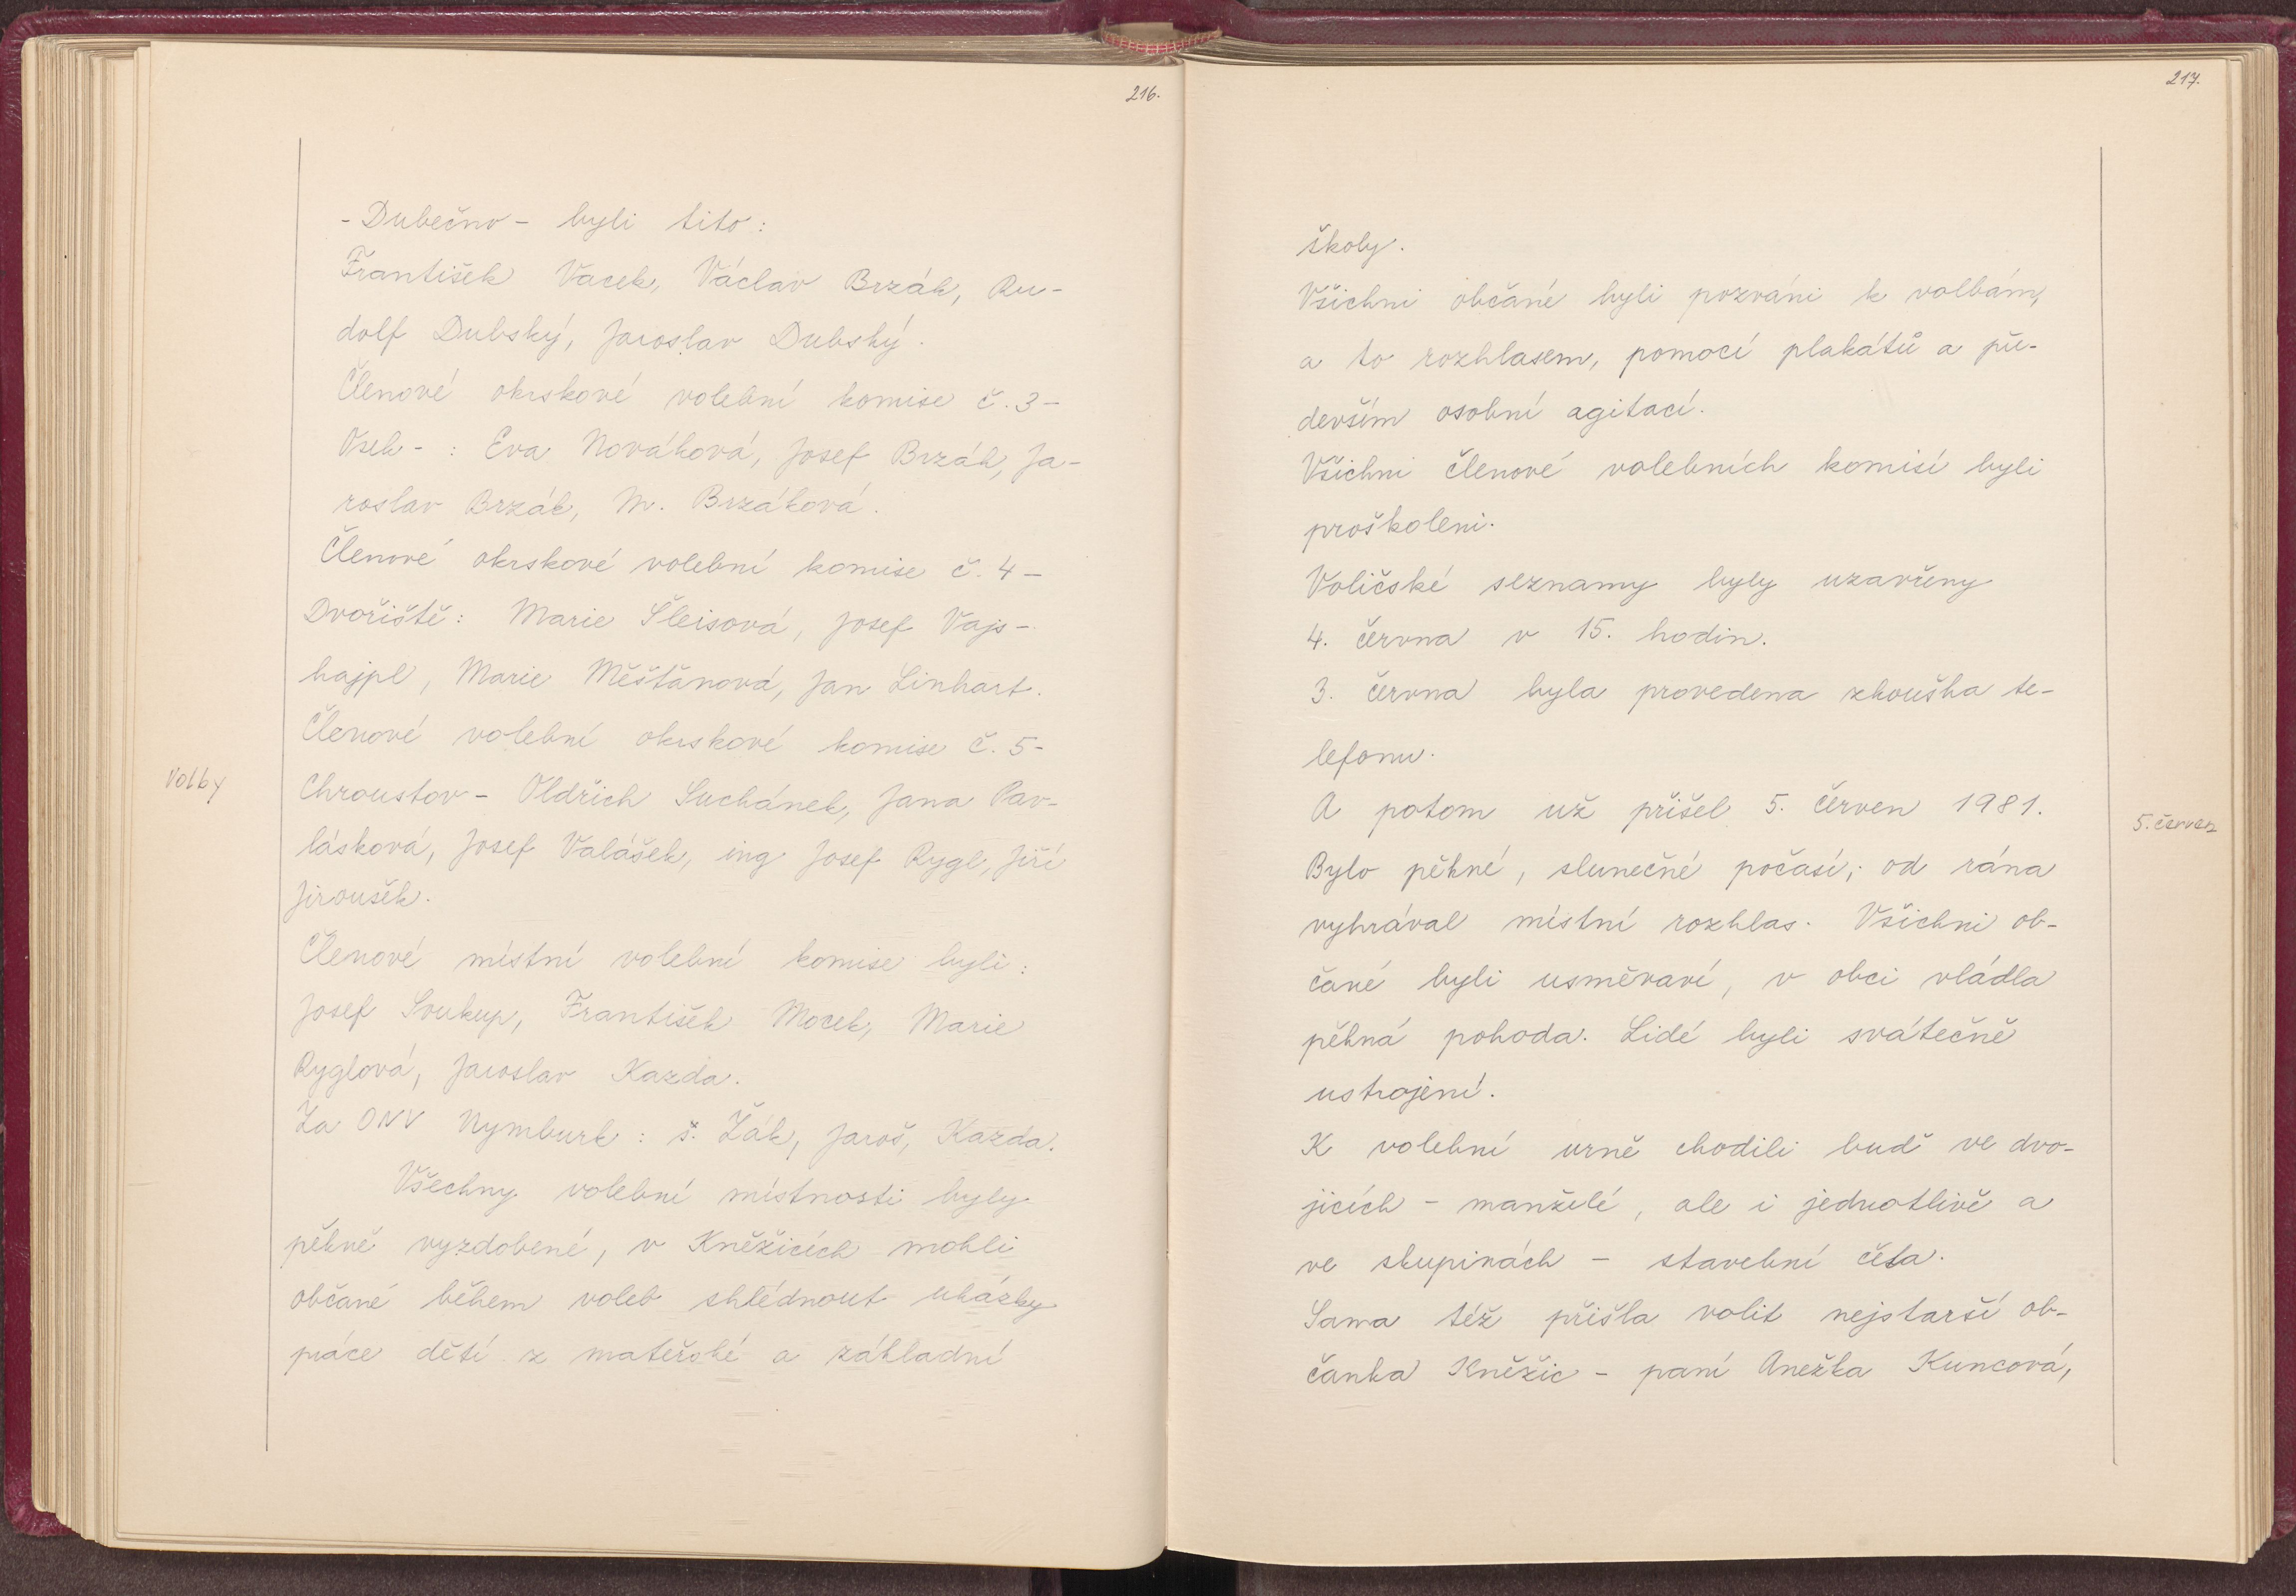 216.
-Dubečno- byli tito:
František Vacek, Václav Brzák, Ru-
dolf Dubský, Jaroslav Dubský.
Členové okrskové volební komise č. 3-
Osek- : Eva Nováková, Josef Brzák, Ja-
roslav Brzák, M. Brzáková.
Členové okrskové volební komise č. 4-
Dvořiště: Marie Šleisová, Josef Vajs-
hajpl, Marie Měšťanová, Jan Linhart.
Členové volební okrskové komise č. 5-
Volby
Chroustov- Oldřich Suchánek, Jana Pav-
lásková, Josef Valášek, ing Josef Rygl, Jiří
Jiroušek.
Členové místní volební komise byli:
Josef Soukup, František Mocek, Marie
Ryglová, Jaroslav Kazda.
Za ONV Nymburk: s. Žák, Jaroš, Kazda.
Všechny volební místnosti byly
pěkně vyzdobené, v Kněžicích mohli
občané během voleb shlédnout ukázky
práce dětí z mateřské a základní
217.
školy.
Všichni občané byli pozváni k volbám,
a to rozhlasem, pomocí plakátů a pře-
devším osobní agitací.
Všichni členové volebních komisí byli
proškoleni.
Voličské seznamy byly uzavřeny
4. června v 15. hodin.
3. června byla provedena zkouška te-
lefonu.
A potom už přišel 5. červen 1981.
5. červen
Bylo pěkné, slunečné počasí; od rána
vyhrával místní rozhlas. Všichni ob-
čané byli usměvaví, v obci vládla
pěkná pohoda. Lidé byli svátečně
ustrojení.
K volební urně chodili buď ve dvo-
jicích - manželé, ale i jednotlivě a
ve skupinách - stavební četa.
Sama též přišla volit nejstarší ob-
čanka Kněžic - paní Anežka Kuncová,